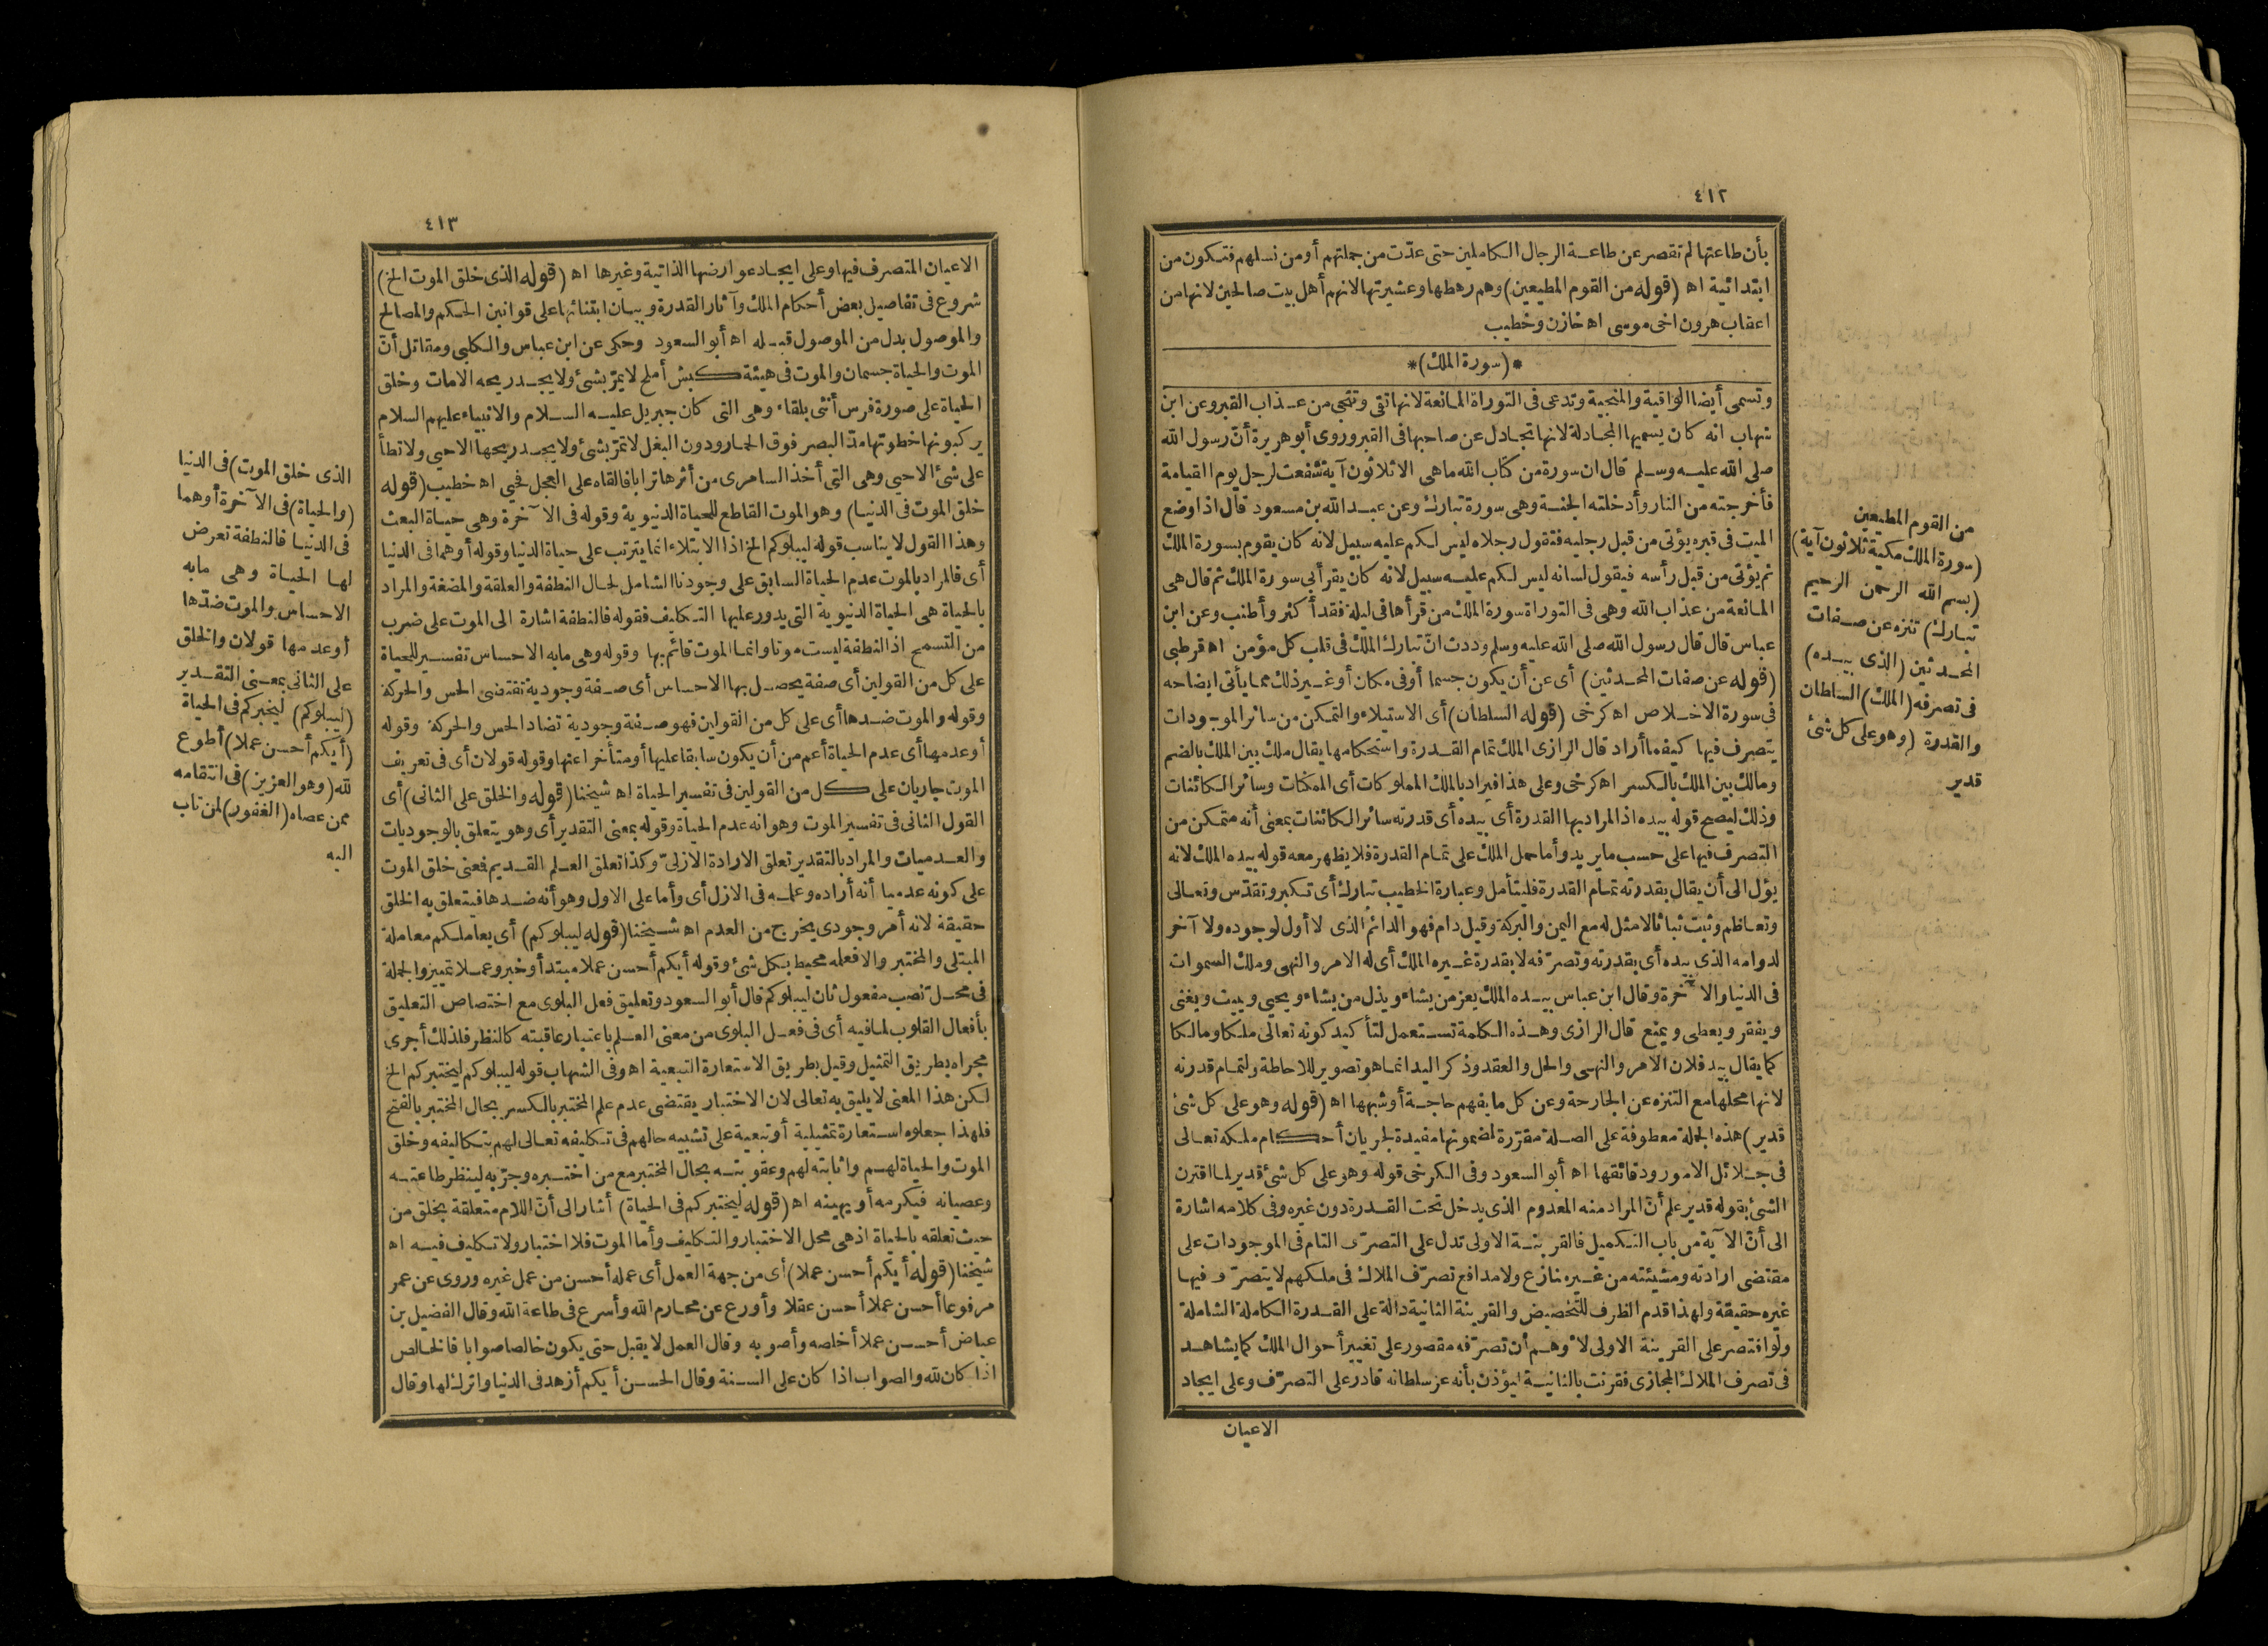 ٤١٢
بأن طاعتها لم تقصر عن طاعة الرجال الكاملين حتى عدّت من جملتهم أو من نسلهم فتكون من
ابتدائية اه (قوله من القوم المطيعين) وهم رهطها وعشيرتها لانهم أهل بيت صالحين لانها من
اعقاب هرون اخى موسى اه خازن وخطيب
*(سورة الملك)*
وتسمى أيضا الواقية والمنجية وتدعى فى التوراة المانعة لانها تقى وتنجى من عذاب القبر وعن ابن
شهاب انه كان يسميها المجادلة لانها تجادل عن صاحبها فى القبر وروى أبو هريرة أنّ رسول الله
صلى الله عليه وسلم قال ان سورة من كتاب الله ما هى الا ثلاثون آية شفعت لرجل يوم القيامة
فأخرجته من النار وأدخلته الجنة وهى سورة تبارك وعن عبد الله بن مسعود قال اذا وضع
الميت فى قبره يؤتى من قبل رجليه فتقول رجلاه ليس لكم عليه سبيل لانه كان يقوم بسورة الملك
ثم يؤتى من قبل رأسه فيقول لسانه ليس لكم عليه سبيل لانه كان يقرأ بى سورة الملك ثم قال هى
المانعة من عذاب الله وهى فى التوراة سورة الملك من قرأها فى ليلة فقد أكثر وأطنب وعن ابن
عباس قال قال رسول الله صلى الله عليه وسلم وددت انّ تبارك الملك فى قلب كل مؤمن اه قرطبى
(قوله عن صفات المحدثين) أى عن أن يكون جسما أو فى مكان أو غير ذلك مما يأتى ايضاحه
فى سورة الاخلاص اه كرخى (قوله السلطان) أى الاستيلاء والتمكن من سائر الموجودات
يتصرف فيها كيفما أراد قال الرازى الملك تمام القدرة واستحكامها يقال ملك بين الملك بالضم
ومالك بين الملك بالكسر اه كرخى وعلى هذا فيراد بالملك المملوكات أى الممكنات وسائر الكائنات
وذلك ليصح قوله بيده اذ المراد بها القدرة أى بيده أى قدرته سائر الكائنات بمعنى أنه متمكن من
التصرف فيها على حسب ما يريد وأما حمل الملك على تمام القدرة فلا يظهر معه قوله بيده الملك لانه
يؤل الى أن يقال بقدرته تمام القدرة فليتأمل وعبارة الخطيب تبارك أى تكبر وتقدّس وتعالى
وتعاظم وثبت ثباتا لا مثل له مع اليمن والبركة وقيل دام فهو الدائم الذى لا أول لوجوده ولا آخر
لدوامه الذى بيده أى بقدرته وتصرّفه لا بقدرة غيره الملك أى له الامر والنهى وملك السموات
فى الدنيا والآخرة وقال ابن عباس بيده الملك يعز من يشاء ويذل من يشاء ويحيى ويميت ويغنى
ويفقر ويعطى ويمنع قال الرازى وهذه الكلمة تستعمل لتأكيد كونه تعالى ملكا ومالكا
كما يقال بيد فلان الامر والنهى والحل والعقد وذكر اليد انما هو تصوير للاحاطة ولتمام قدرته
لانها محلها مع التنزه عن الجارحة وعن كل ما يفهم حاجة أو شبهها اه (قوله وهو على كل شئ
قدير) هذه الجملة معطوفة على الصلة مقرّرة لمضمونها مفيدة لجريان أحكام ملكه تعالى
فى جلائل الامور ودقائقها اه أبو السعود وفى الكرخى قوله وهو على كل شئ قدير لما اقترن
الشئ بقوله قدير علم أنّ المراد منه المعدوم الذى يدخل تحت القدرة دون غيره وفى كلامه اشارة
الى أنّ الآية من باب التكميل فالقرينة الاولى تدل على التصرّف التام فى الموجودات على
مقتضى ارادته ومشيئته من غير منازع ولا مدافع تصرّف الملاك فى ملكهم لا يتصرّف فيها
غيره حقيقة ولهذا قدم الظرف للتخصيص والقرينة الثانية دالة على القدرة الكاملة الشاملة
ولو اقتصر على القرينة الاولى لاوهم أن تصرّفه مقصور على تغيير أحوال الملك كما يشاهد
فى تصرف الملاك المجازى فقرنت بالثانية ليؤذن بأنه عز سلطانه قادر على التصرّف وعلى ايجاد
الاعيان
من القوم المطيعين
(سورة الملك مكية ثلاثون آية)
(بسم الله الرحمن الرحيم
تبارك) تنزه عن صفات
المحدثين (الذى بيده)
فى تصرفه (الملك) السلطان
والقدرة (وهو على كل شئ
قدير
٤١٣
الاعيان المتصرف فيها وعلى ايجاد عوارضها الذاتية وغيرها اه (قوله الذى خلق الموت الخ)
شروع فى تفاصيل بعض أحكام الملك وآثار القدرة وبيان ابتنائها على قوانين الحكم والمصالح
والموصول بدل من الموصول قبله اه أبو السعود وحكى عن ابن عباس والكلبى ومقاتل أنّ
الموت والحياة جسمان والموت فى هيئة كبش أملح لا يمرّ بشئ ولا يجد ريحه الامات وخلق
الحياة على صورة فرس أنثى بلقاء وهى التى كان جبريل عليه السلام والانبياء عليهم السلام
يركبونها خطوتها مدّ البصر فوق الحمار ودون البغل لا تمرّ بشئ ولا يجد ريحها الاحيى ولا تطأ
على شئ الاحيى وهى التى أخذ السامرى من أثرها ترابا فالقاه على العجل فحيى اه خطيب (قوله
خلق الموت فى الدنيا) وهو الموت القاطع للحياة الدنيوية وقوله فى الآخرة وهى حياة البعث
وهذا القول لا يناسب قوله ليبلوكم الخ اذا الابتلاء انما يترتب على حياة الدنيا وقوله أو هما فى الدنيا
أى فالمراد بالموت عدم الحياة السابق على وجودنا الشامل لحال النطفة والعلقة والمضغة والمراد
بالحياة هى الحياة الدنيوية التى يدور عليها التكليف فقوله فالنطفة اشارة الى الموت على ضرب
من التسمح اذ النطفة ليست موتا وانما الموت قائم بها وقوله وهى ما به الاحساس تفسير للحياة
على كل من القولين أى صفة يحصل بها الاحساس أى صفة وجودية تقتضى الحس والحركة
وقوله والموت ضدها أى على كل من القولين فهو صفة وجودية تضاد الحس والحركة وقوله
أو عدمها أى عدم الحياة أعم من أن يكون سابقا عليها أو متأخرا عنها وقوله قولان أى فى تعريف
الموت جاريان على كل من القولين فى تفسير الحياة اه شيخنا (قوله والخلق على الثانى) أى
القول الثانى فى تفسير الموت وهو انه عدم الحياة وقوله بمعنى التقدير أى وهو يتعلق بالوجوديات
والعدميات والمراد بالتقدير تعلق الارادة الازلىّ وكذا تعلق العلم القديم فمعنى خلق الموت
على كونه عدميا أنه أراده وعلمه فى الازل أى وأما على الاول وهو أنه ضدها فيتعلق به الخلق
حقيقة لانه أمر وجودى يخرج من العدم اه شيخنا (قوله ليبلوكم) أى يعاملكم معاملة
المبتلى والمختبر والا فعلمه محيط بكل شئ وقوله أيكم أحسن عملا مبتدأ وخبر وعملا تمييز والجملة
فى محل نصب مفعول ثان ليبلوكم قال أبو السعود وتعليق فعل البلوى مع اختصاص التعليق
بأفعال القلوب لما فيه أى فى فعل البلوى من معنى العلم باعتبار عاقبته كالنظر فلذلك أجرى
مجراه بطريق التمثيل وقيل بطريق الاستعارة التبعية اه وفى الشهاب قوله ليبلوكم ليختبركم الخ
لكن هذا المعنى لا يليق به تعالى لان الاختبار يقتضى عدم علم المختبر بالكسر بحال المختبر بالفتح
فلهذا جعلوه استعارة تمثيلية أو تبعية على تشبيه حالهم فى تكليفه تعالى لهم بتكاليفه وخلق
الموت والحياة لهم واثابته لهم وعقوبته بحال المختبر مع من اختبره وجرّبه لينظر طاعته
وعصيانه فيكرمه أو يهينه اه (قوله ليختبركم فى الحياة) أشار الى أنّ اللام متعلقة بخلق من
حيث تعلقه بالحياة اذ هى محل الاختبار والتكليف وأما الموت فلا اختبار ولا تكليف فيه اه
شيخنا (قوله أيكم أحسن عملا) أى من جهة العمل أى عمله أحسن من عمل غيره وروى عن عمر
مرفوعا أحسن عملا أحسن عقلا وأورع عن محارم الله وأسرع فى طاعة الله وقال الفضيل بن
عياض أحسن عملا أخلصه وأصوبه وقال العمل لا يقبل حتى يكون خالصا صوابا فالخالص
اذا كان لله والصواب اذا كان على السنة وقال الحسن أيكم أزهد فى الدنيا واترك لها وقال
الذى خلق الموت) فى الدنيا
(والحياة) فى الآخرة أو هما
فى الدنيا فالنطفة تعرض
لها الحياة وهى ما به
الاحساس والموت ضدّها
أو عدمها قولان والخلق
على الثانى بمعنى التقدير
(ليبلوكم) ليختبركم فى الحياة
(أيكم أحسن عملا) أطوع
لله (وهو العزيز) فى انتقامه
ممن عصاه (الغفور) لمن تاب
اليه